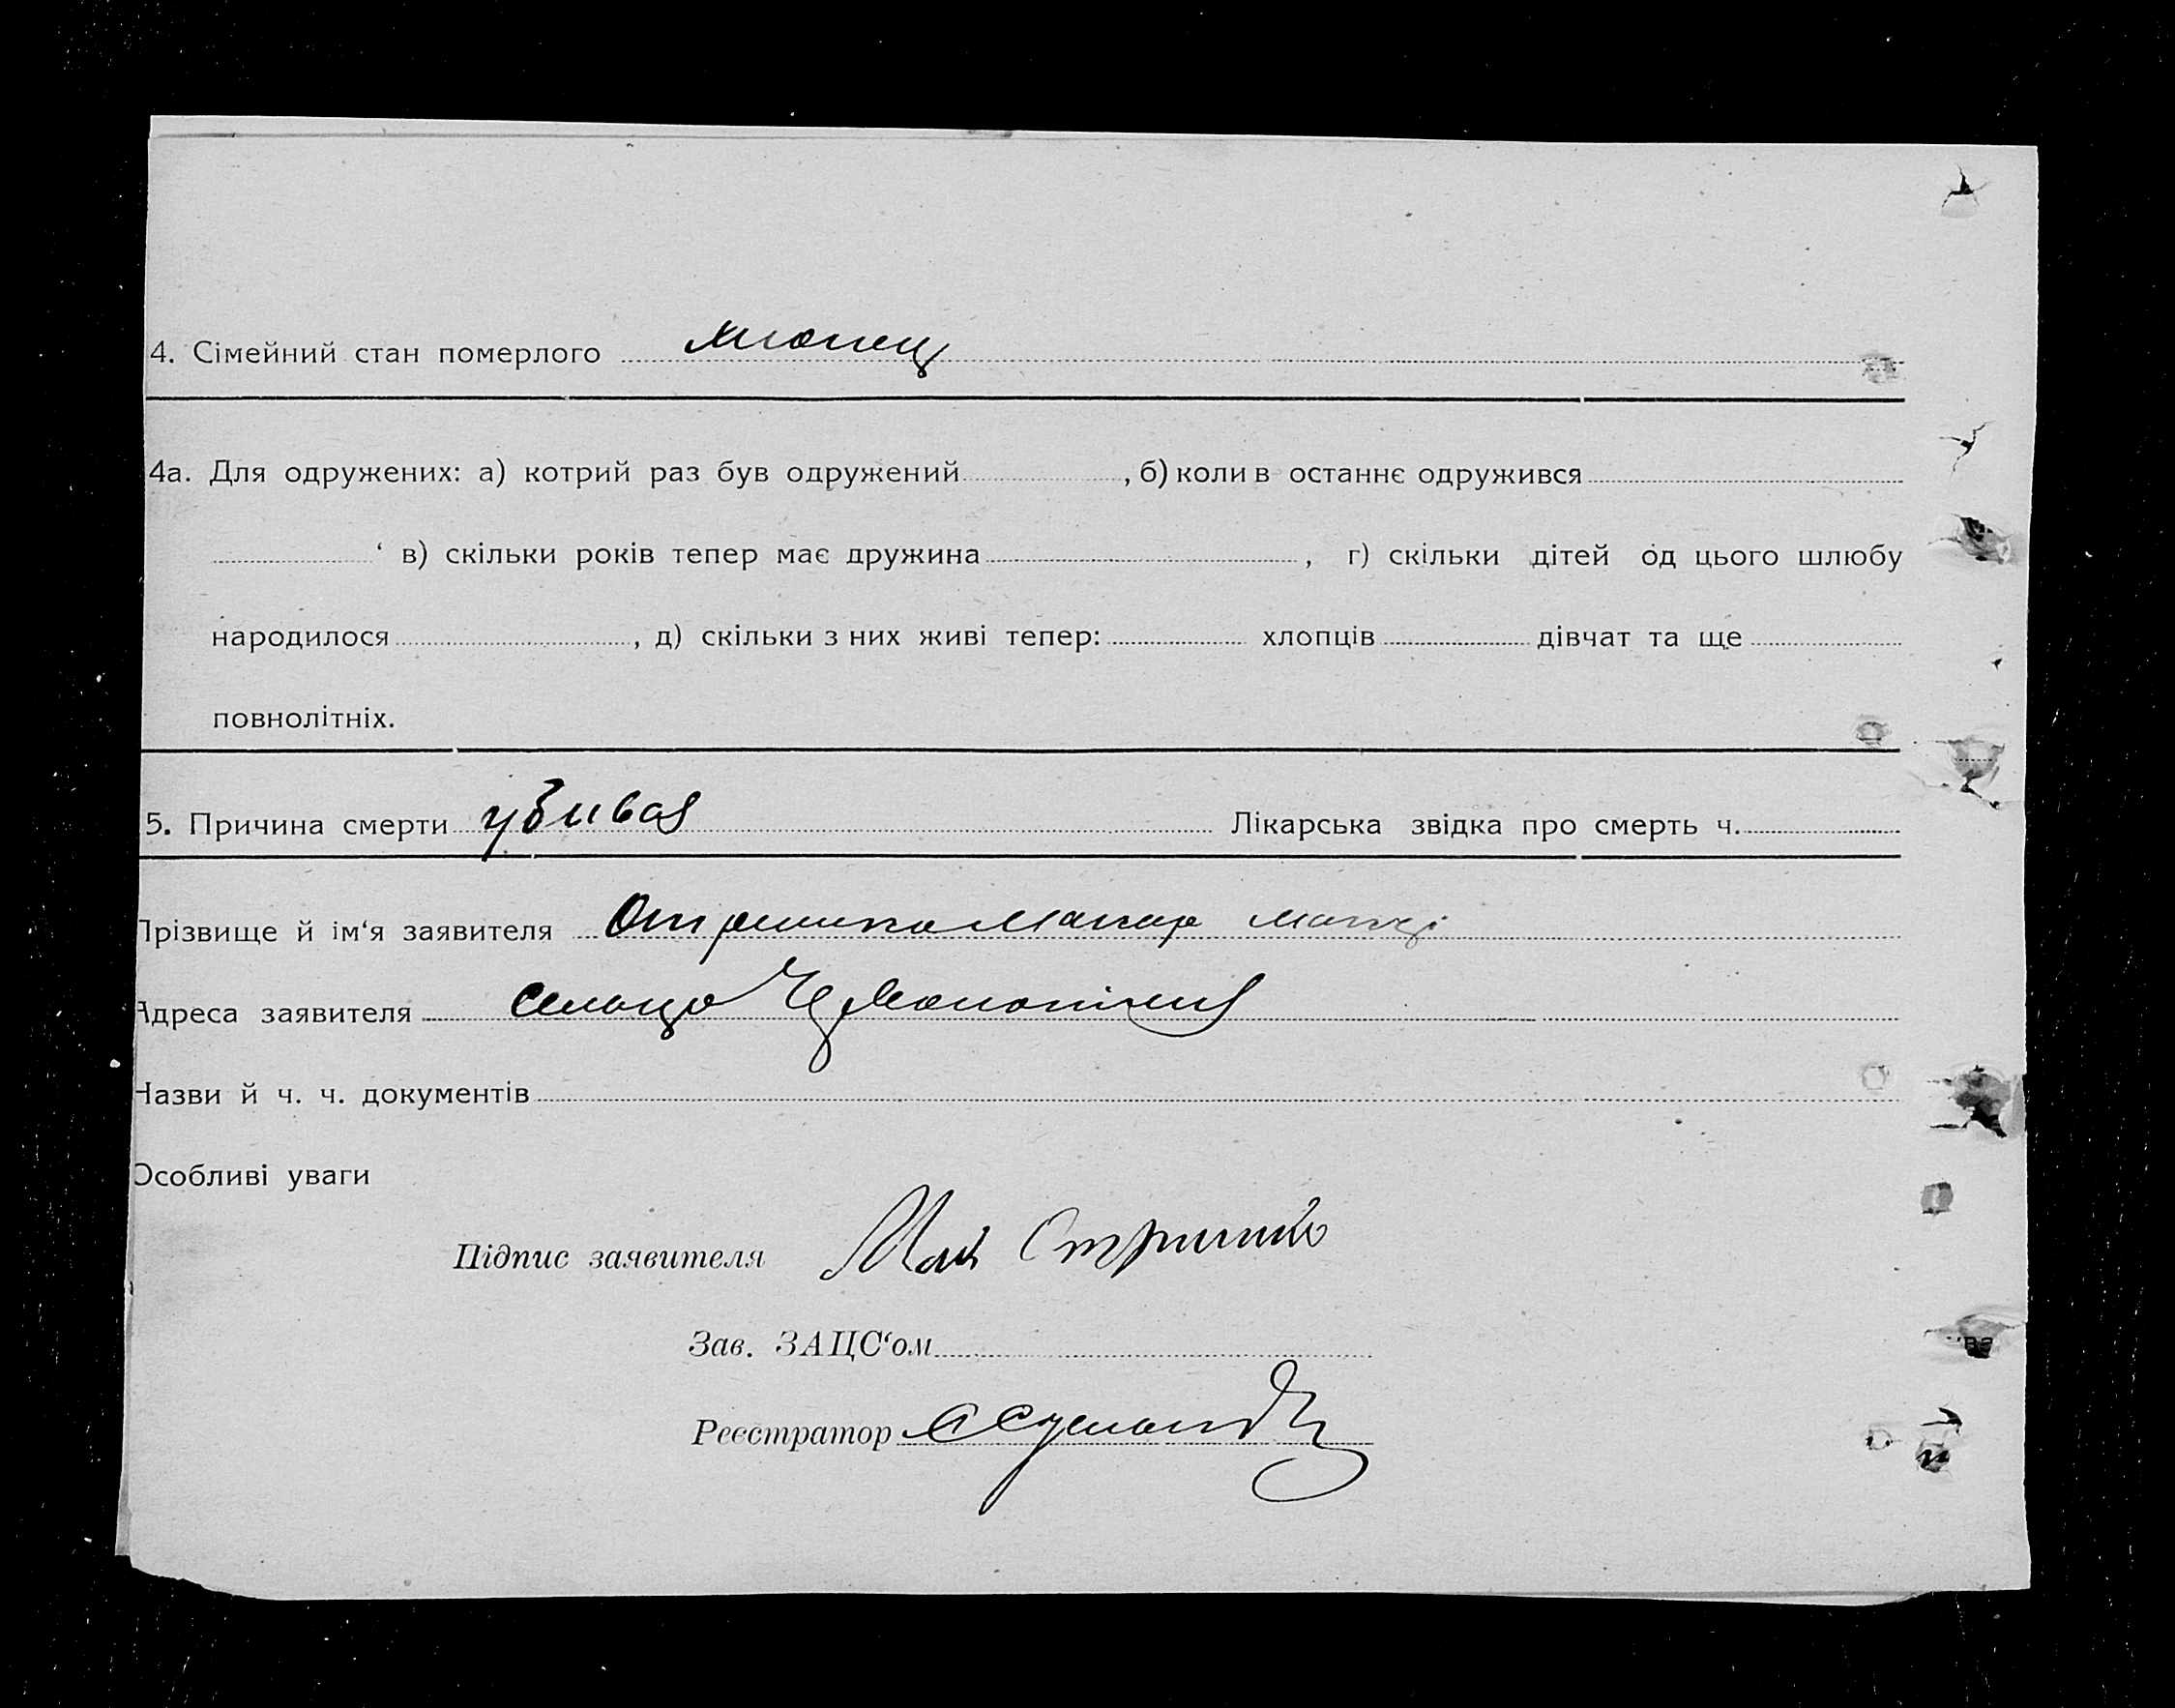 4. Сімейний стан померлого хлопец
4а. Для одружених: а) котрий раз був одружений , б) коли в останнє одружився
‘ в) скільки років тепер має дружина , г) скільки дітей од цього шлюбу
народилося , д) скільки з них живі тепер: хлопців дівчат та ще
повнолітніх.
5. Причина смерти Лікарська звідка про смерть ч.
Прізвище й ім‘я заявителя Макар
Адреса заявителя
Назви й ч. ч. документів
Особливі уваги
Підпис заявителя
Зав. ЗАЦС‘ом
Реєстратор